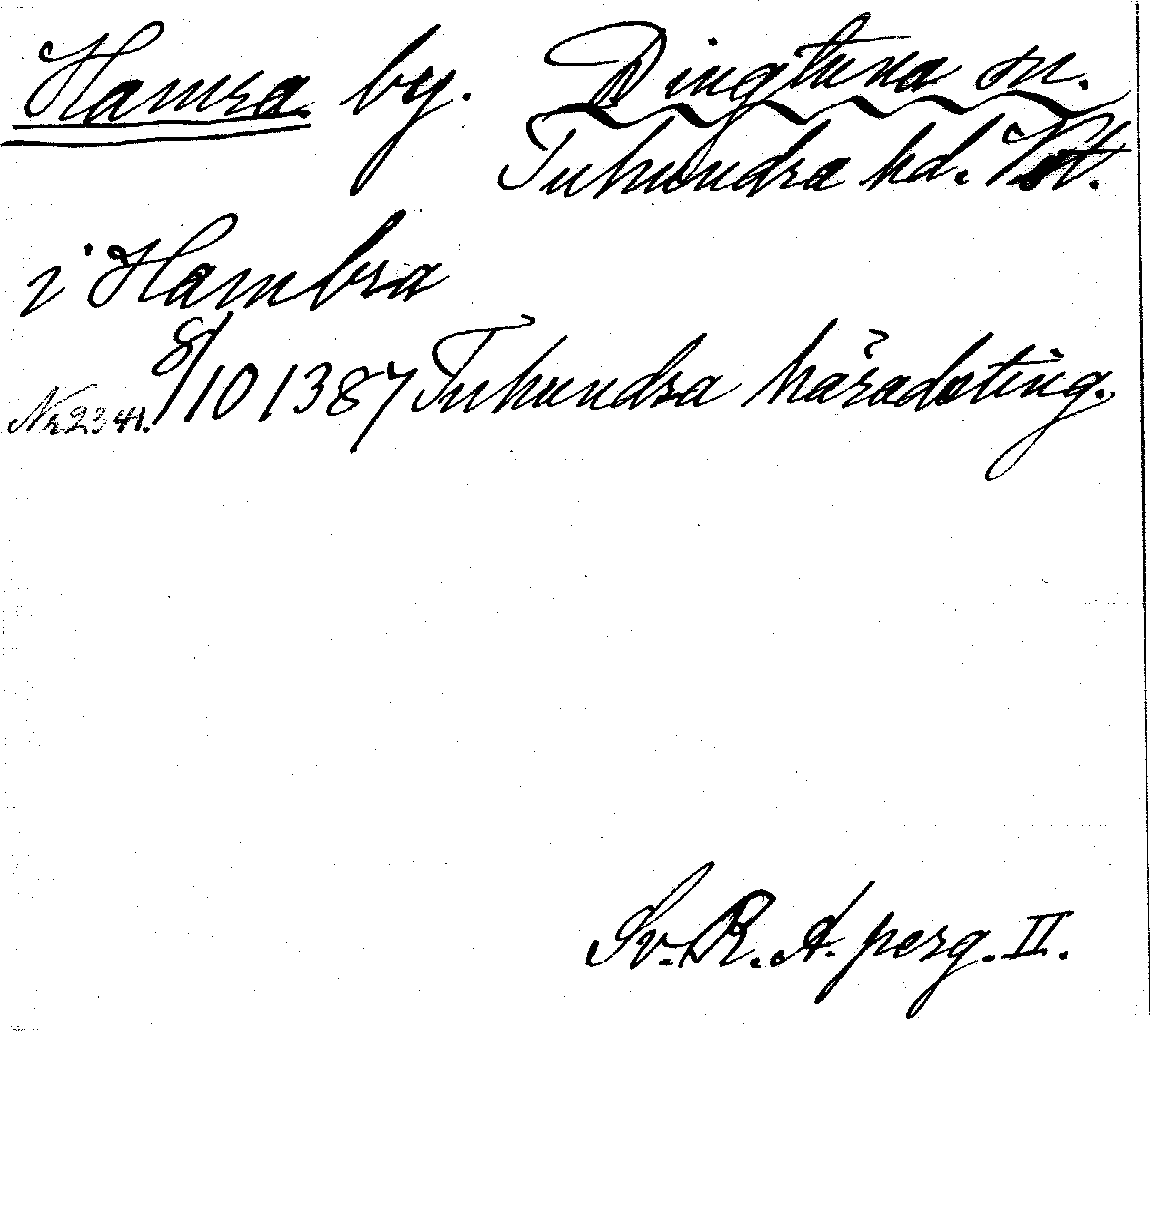 Hamra by. Dingtuna sn.
Tuhundra hd. Vstm.
i Hambra
8/10 1387 Tuhundra häradsting.
Nr 2341.
Sv. R. A. perg. II.